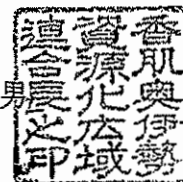 香肌奥伊勢
資源化広域
連合長之印
男